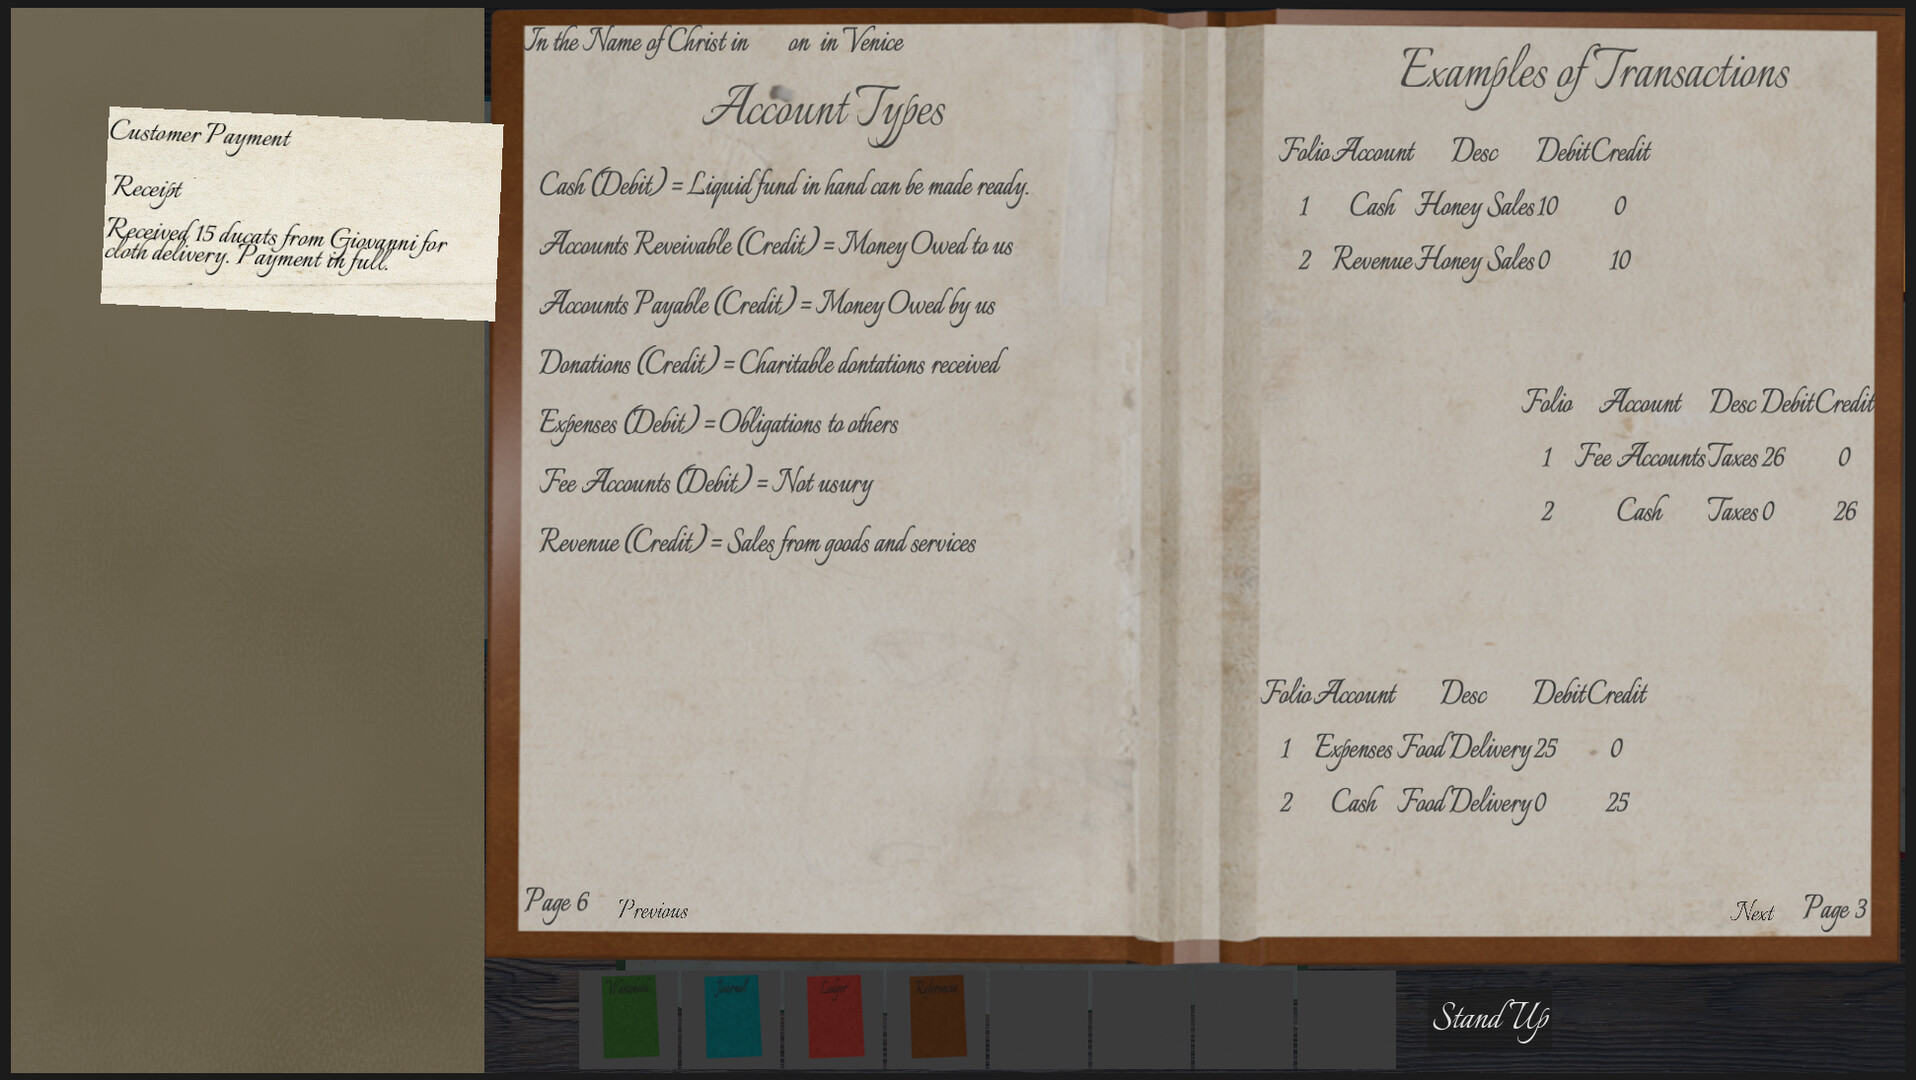 Customer Payment
Receipt
Received 15 ducats from Giovanni for
cloth delivery. Payment in full.
In the Name of Christ in on in Venice
Account Types
Cash (Debit) = Liquid fund in hand can be made ready.
Accounts Reveivable (Credit) = Money Owed to us
Accounts Payable (Credit) = Money Owed by us
Donations (Credit) = Charitable dontations received
Expenses (Debit) = Obligations to others
Fee Accounts (Debit) = Not usury
Revenue (Credit) = Sales from goods and services
Page 6 Previous
Examples of Transactions
Folio Account Desc Debit Credit
1 Cash Honey Sales 10 0
2 Revenue Honey Sales 0 10
Folio Account Desc Debit Credit
1 Fee Accounts Taxes 26 0
2 Cash Taxes 0 26
Folio Account Desc Debit Credit
1 Expenses Food Delivery 25 0
2 Cash Food Delivery 0 25
Next Page 3
Journal Ledger References
Stand Up